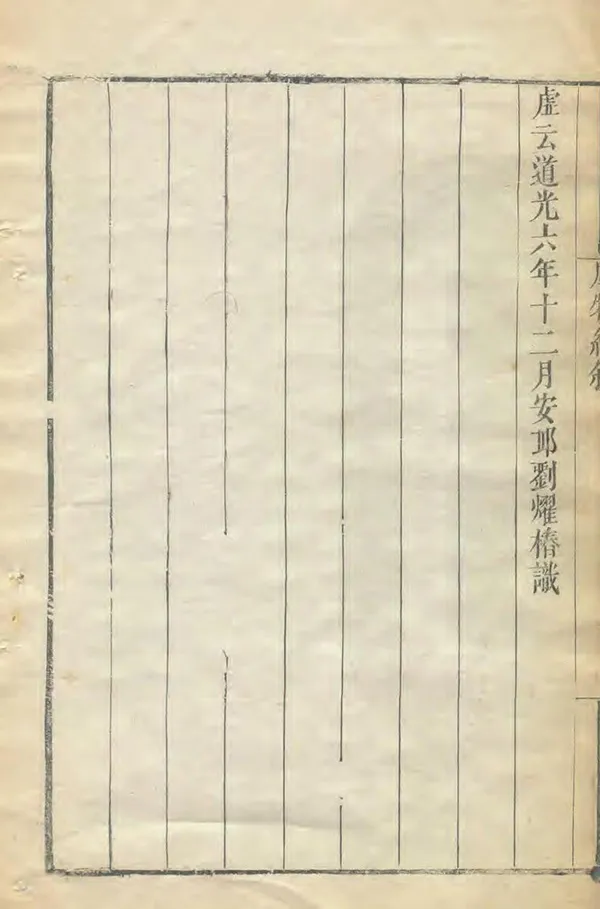 虛云道光六年十二月安邱劉耀椿識